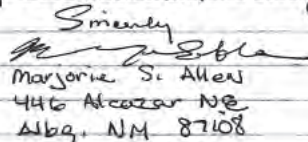 Sincerely
Marjorie S. Allen
446 Alcazar NE
Albq. NM 87108